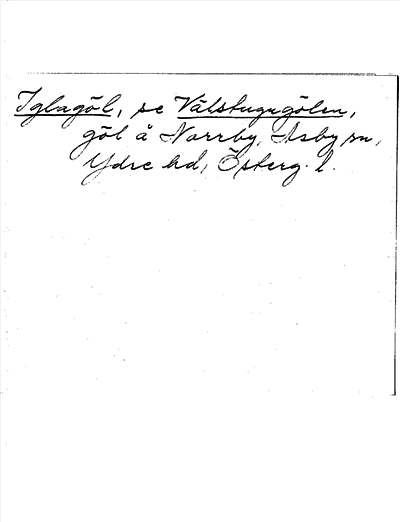 Iglagöl, se Vålstugugölen,
göl å Norrby, Asby sn,
Ydre hd, Österg. l.